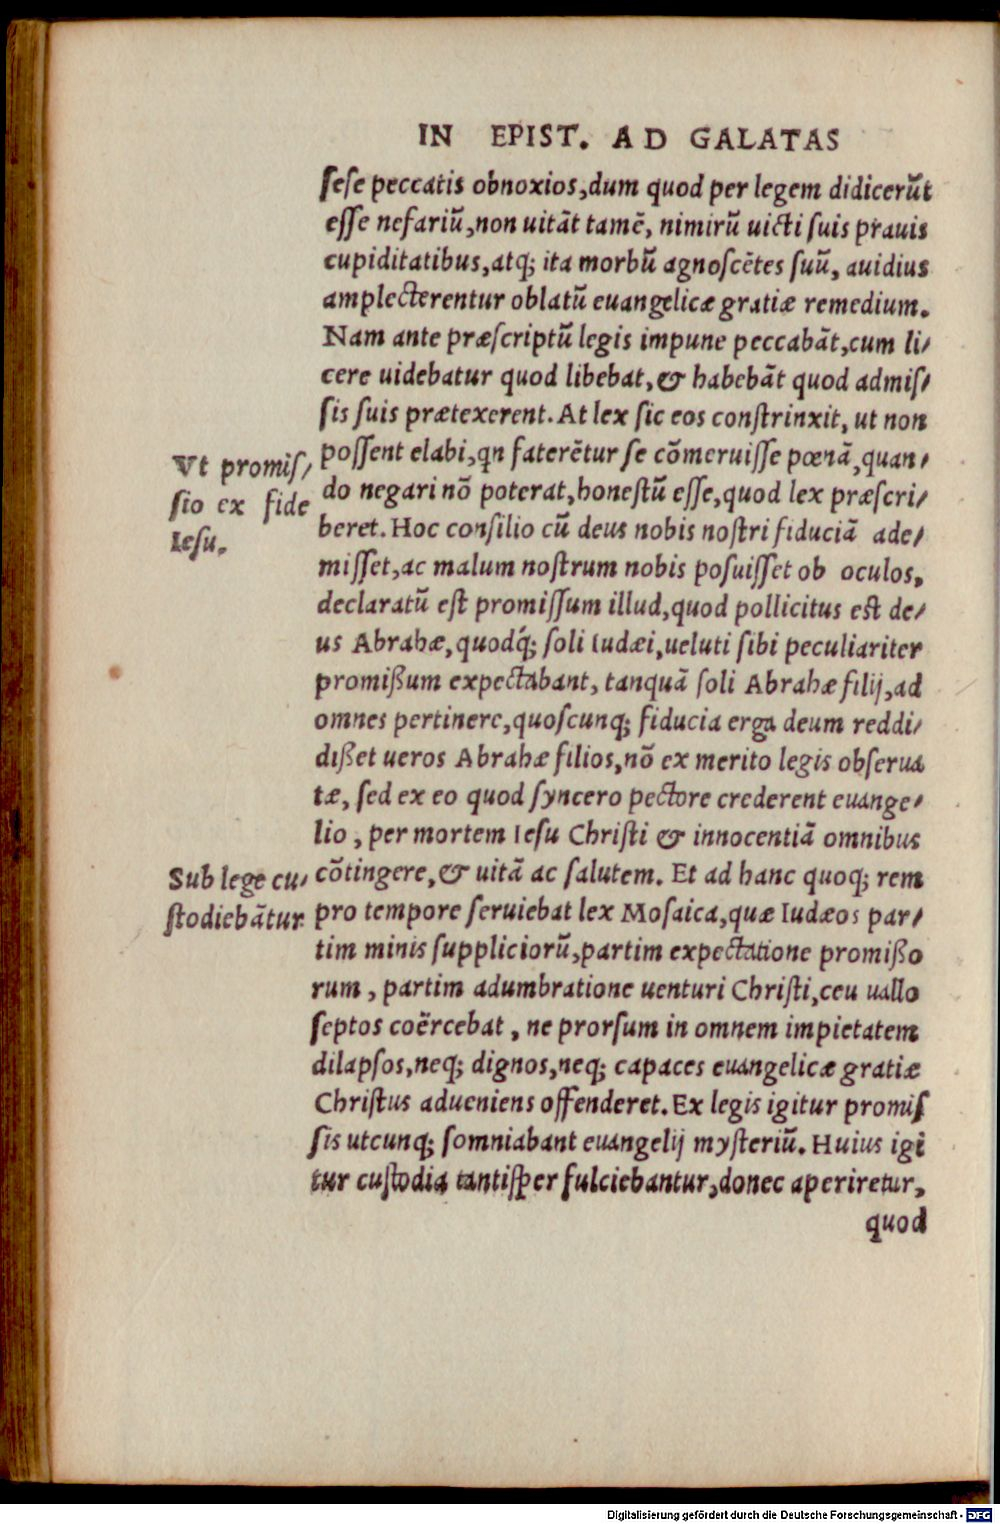 IN EPIST. AD GALATAS
ſeſe peccatis obnoxios,dum quod per legem didicerūt
eſſe nefariū,non uitāt tamē, nimirū uicti ſuis prauis
cupiditatibus,atq; ita morbū agnoſcētes ſuū, auidius
amplecterentur oblatū euangelicæ gratiæ remedium.
Nam ante præſcriptū legis impune peccabāt,cum li/
cere uidebatur quod libebat,& habebāt quod admiſ/
ſis ſuis prætexerent. At lex ſic eos conſtrinxit, ut non
poſſent elabi,qn faterētur ſe cōmeruiſſe pœnā,quan/
do negari nō poterat,honeſtū eſſe,quod lex præſcri/
beret. Hoc conſilio cū deus nobis noſtri fiduciā ade/
miſſet,ac malum noſtrum nobis poſuiſſet ob oculos,
declaratū eſt promiſſum illud,quod pollicitus eſt de/
us Abrahæ,quodq́; ſoli Iudæi,ueluti ſibi peculiariter
promißum expectabant, tanquā ſoli Abrahæ filij,ad
omnes pertinere,quoſcunq; fiducia erga deum reddi/
dißet ueros Abrahæ filios,nō ex merito legis obſerua
tæ, ſed ex eo quod ſyncero pectore crederent euange/
lio, per mortem Ieſu Chriſti & innocentiā omnibus
cōtingere,& uitā ac ſalutem. Et ad hanc quoq; rem
pro tempore ſeruiebat lex Moſaica,quæ Iudæos par/
tim minis ſuppliciorū,partim expectatione promißo
rum, partim adumbratione uenturi Chriſti,ceu uallo
ſeptos coërcebat, ne prorſum in omnem impietatem
dilapſos,neq; dignos,neq; capaces euangelicæ gratiæ
Chriſtus adueniens offenderet. Ex legis igitur promiſ
ſis utcunq; ſomniabant euangelij myſteriū. Huius igi
tur cuſtodia tantiſper fulciebantur,donec aperiretur,
quod
Vt promiſ/
ſio ex fide
Ieſu.
Sub lege cu/
ſtodiebātur.
Digitalisierung gefördert durch die Deutsche Forschungsgemeinschaft - DFG